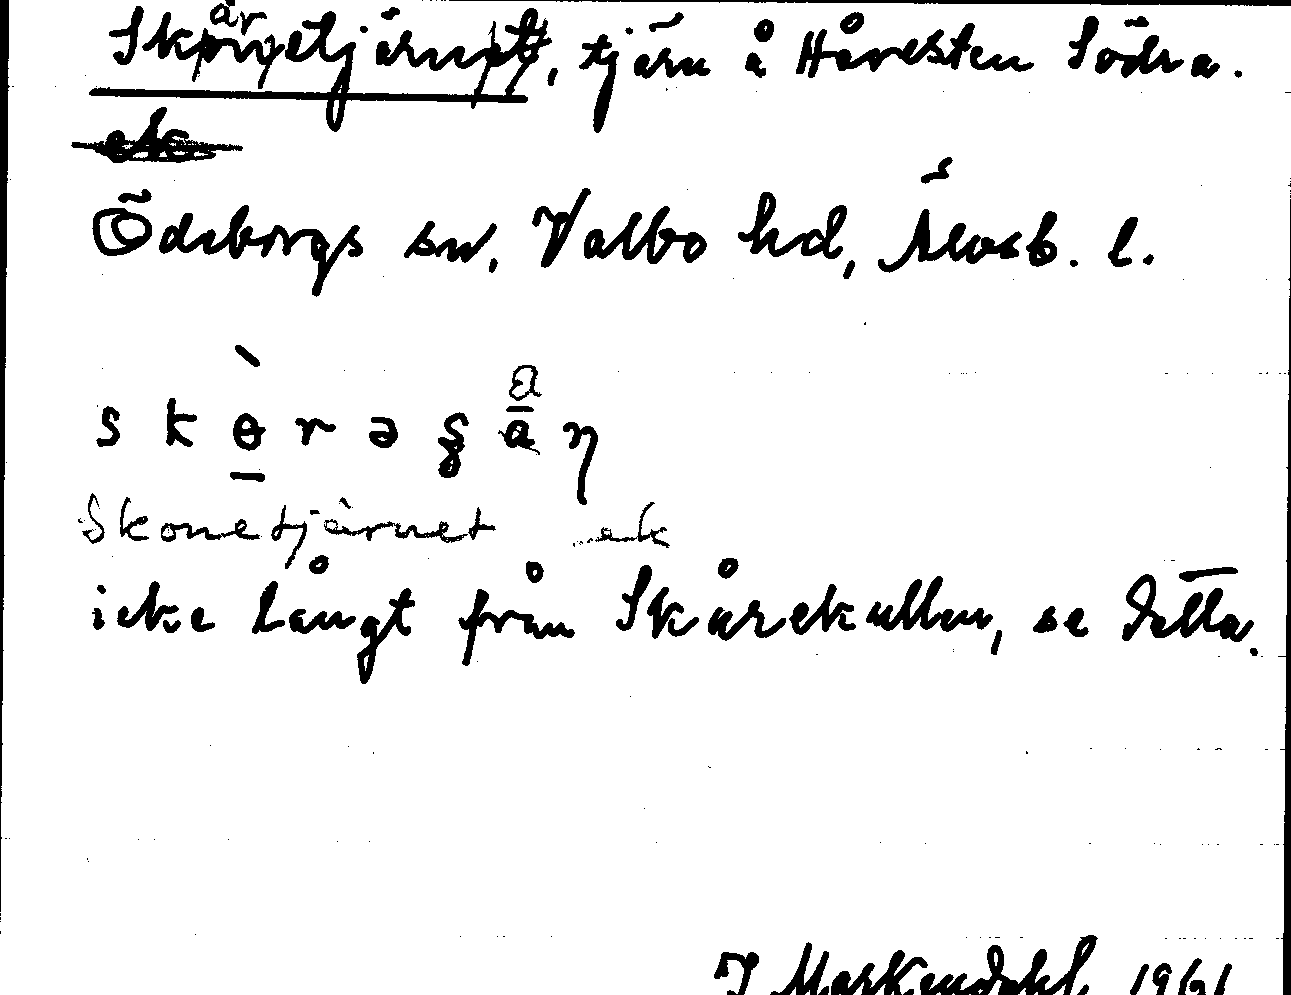 Skåretjärn, tjärn å Håvesten Södra.
Ödeborgs sn, Valbo hd, Älvsb. l.
s k ɵ̀ r ə ʂ a ŋ
Skonetjärnet ek
icke långt från Skårekullen, se detta.
J Markendahl 1961